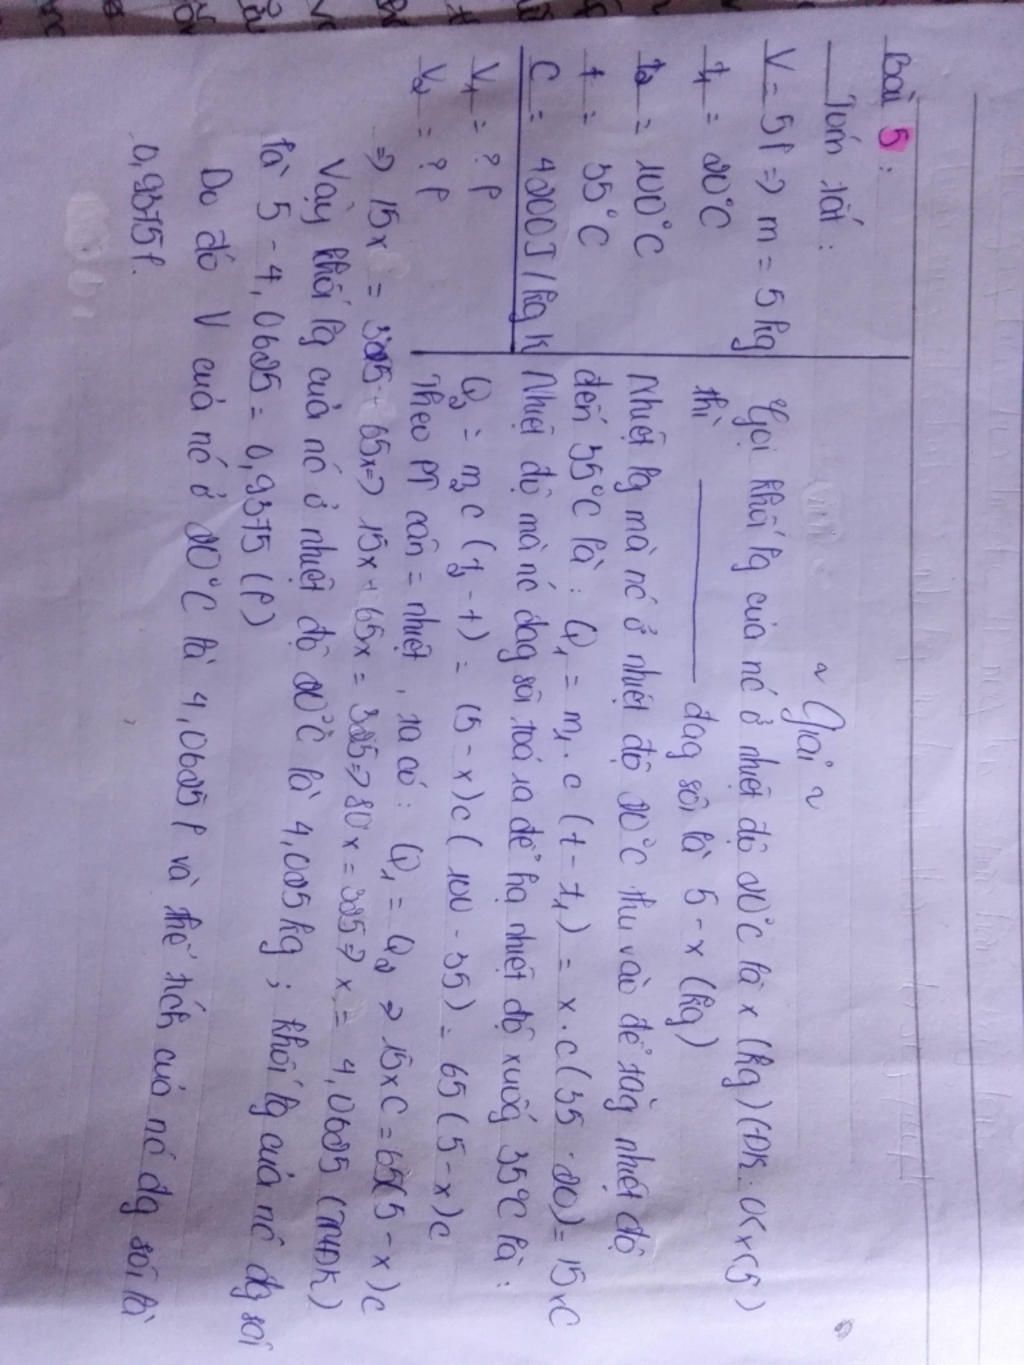 Bài 5:
Tóm tắt:
V = 5l => m = 5kg
t1 = 20°C
t2 = 100°C
t = 35°C
C = 4200J/kg K
V1 = ? l
V2 = ? l
~ Giải ~
Gọi khối lg của nó ở nhiệt độ 20°C là x (kg) (ĐK: 0<x<5)
thì ——— đag sôi là 5 - x (kg)
Nhiệt lg mà nó ở nhiệt độ 20°C thu vào để tăg nhiệt độ
đến 35°C là: Q1 = m1. c (t - t1) = x. c (35 - 20) = 15xC
Nhiệt độ mà nó đag sôi toả ra để hạ nhiệt độ xuốg 35°C là:
Q2 = m2 c (t2 - t) = (5 - x)c (100 - 35) = 65 (5 - x)c
Theo PT cân = nhiệt, ta có: Q1 = Q2 => 15xC = 65(5 - x)c
=> 15x = 325 - 65x => 15x + 65x = 325 => 80x = 325 => x = 4,0625 (TMĐK)
Vậy khối lg của nó ở nhiệt độ 20°C là 4,025kg; khối lg của nó đg sôi
là 5 - 4,0625 = 0,9375 (l)
Do đó V của nó ở 20°C là 4,0625 l và thể tích của nó đg sôi là
0,9375l.